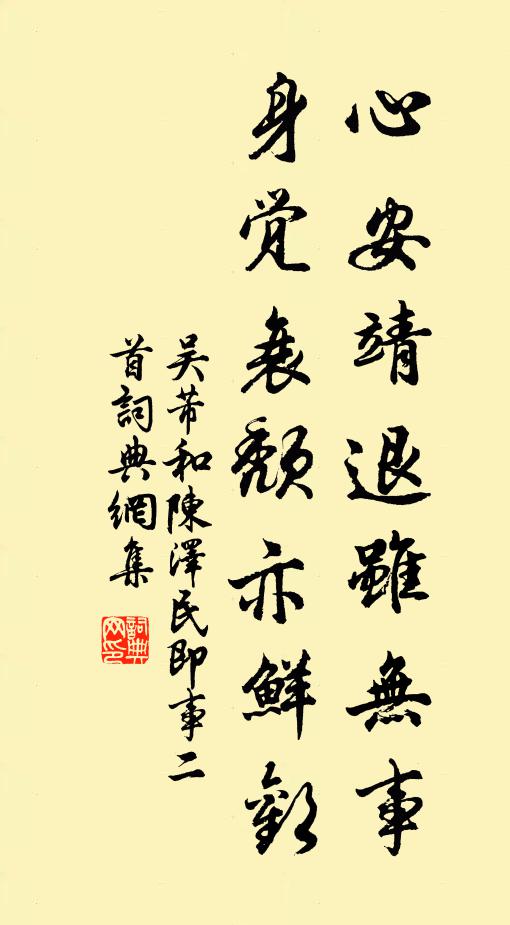 心安靖退雖無事
身觉衰颓亦鮮歡
吴芾和陳澤民即事二
首詞典網集
詞典
网印